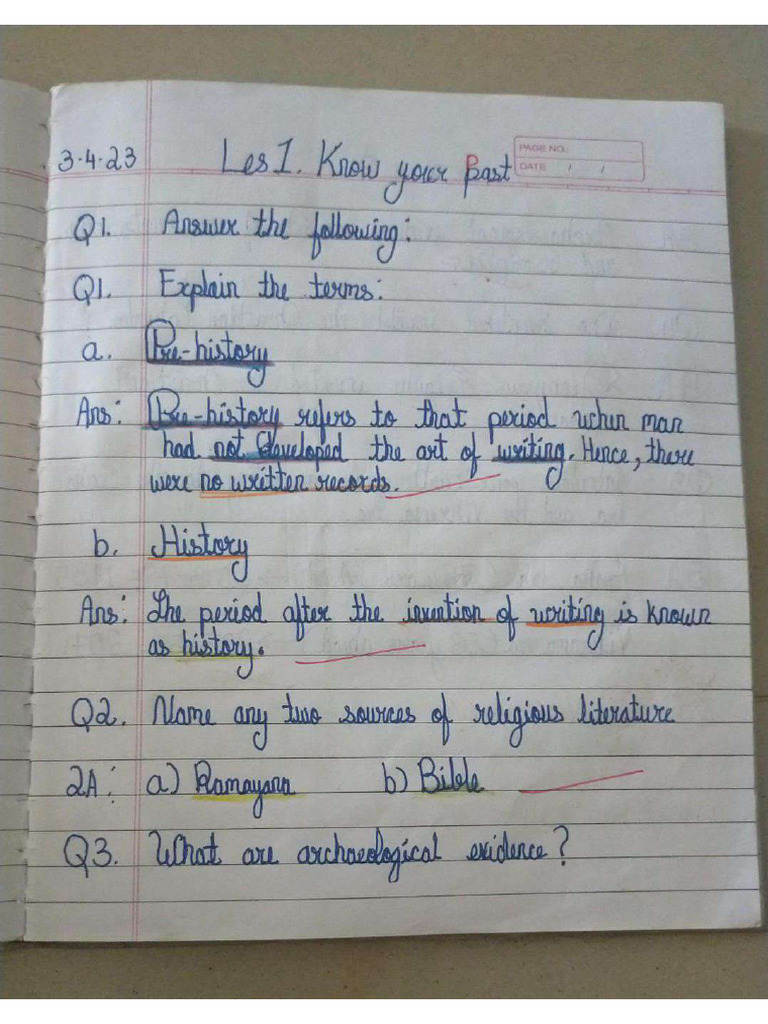 PAGE NO:
DATE / /
3.4.23 Les 1. Know your Past
Q1. Answer the following:
Q1. Explain the terms:
a. Pre-history
Ans: Pre-history refers to that period when man
had not developed the art of writing. Hence, there
were no written records.
b. History
Ans: The period after the invention of writing is known
as history.
Q2. Name any two sources of religious literature
2A: a) Ramayana b) Bible
Q3. What are archaeological evidence?